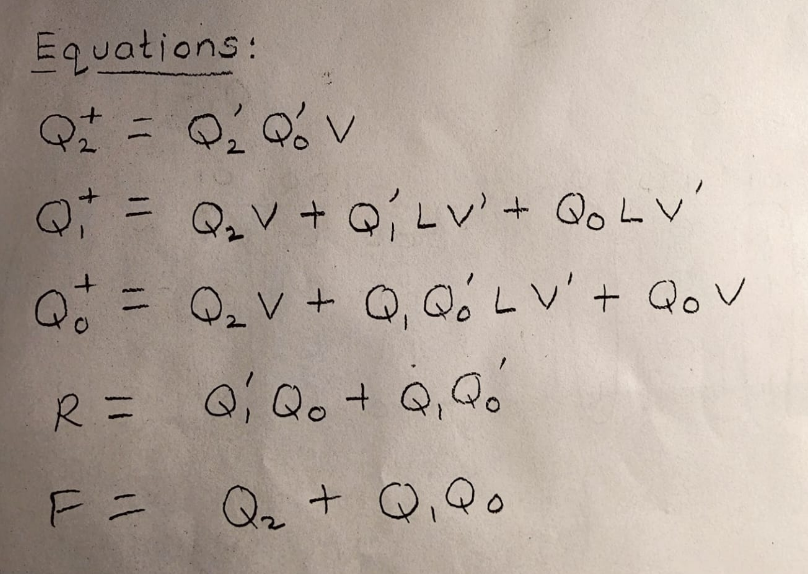 Equations:
Q₂⁺ = Q₂' Q₀' V
Q₁⁺ = Q₂ V + Q₁' L V' + Q₀ L V'
Q₀⁺ = Q₂ V + Q₁ Q₀' L V' + Q₀ V
R = Q₁' Q₀ + Q₁ Q₀'
F = Q₂ + Q₁ Q₀